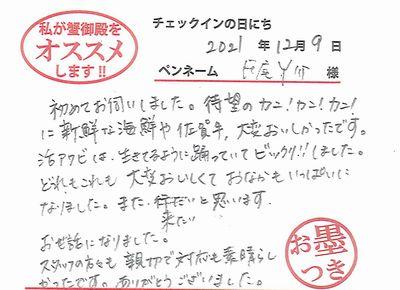 私が蟹御殿を
オススメ
します!!
チェックインの日にち
2021 年 12月 9 日
ペンネーム 様
初めてお伺いしました。待望のカニ!カニ!カニ!
に新鮮な海鮮や佐賀牛,大変おいしかったです。
活アワビは、生きてるように踊っていてビックリ!!しました。
どれもこれも 大変おいしくておなかもいっぱいに
なりました。また、行だいと思います。
来たい
お世話になりました。
スタッフの方々も 親切で対応も素晴らし
かったです。ありがとうございました。
お墨つき